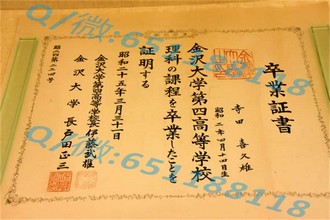 卒業証書
寺田喜久雄
昭和二年四月十四日生
金沢大学第四高等学校
理科の課程を卒業したことを
証明する
昭和二十五年三月三十一日
金沢大学第四高等学校長 伊藤武雄
金沢大学長 戸田正三
Q/微:651188118
Q/微:651188118